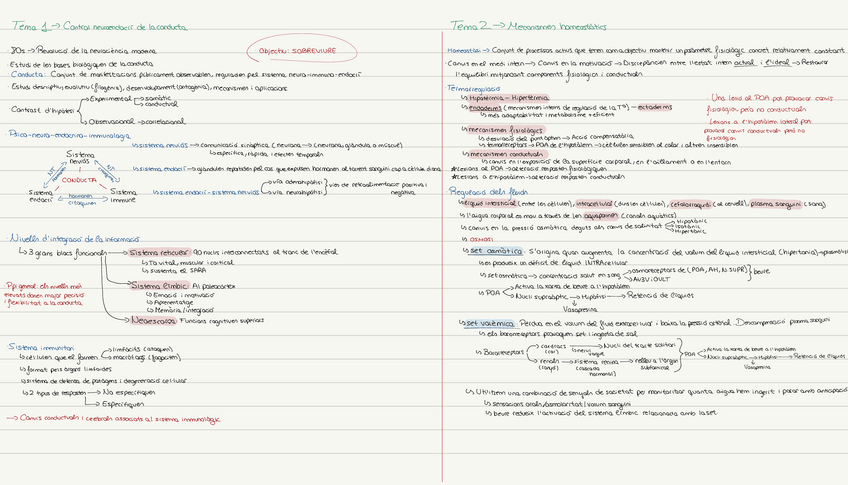 Tema 1 → Control neuroendocrí de la conducta
70s → Revolució de la neurociència moderna
Objectiu: SOBREVIURE
· Estudi de les bases biològiques de la conducta
Conducta: Conjunt de manifestacions públicament observables, regulades pel sistema neuro-immuno-endocrí
Estudi descriptiu, evolutiu (filogènia), desenvolupament (ontogènia), mecanismes i aplicacions
Contrast d'hipòtesi
→ Experimental → somàtic
→ conductual
→ Observacional → correlacional
Psico-neuro-endocrino-immunologia
Sistema nerviós
CONDUCTA
NT
NT
Sistema endocrí
hormones
citoquines
Sistema immune
↳ sistema nerviós → comunicació sinàptica, (neurona → (neurona, glàndula o múscul)
↳ específica, ràpida, i efectes temporals
↳ sistema endocrí → glàndules repartides pel cos que expulsen hormones al torrent sanguini cap a cèl·lula diana
↳ sistema endocrí - sistema nerviós
→ via adenohipòfisi
→ via neurohipòfisi
vies de retroalimentació positiva i negativa
Nivells d'integració de la informació
↳ 3 grans blocs funcionals
→ Sistema reticular: 90 nuclis interconnectats al tronc de l'encèfal
↳ To vital, muscular i cortical
↳ sustenta el SARA
→ Sistema límbic: Al paleocòrtex
↳ Emoció i motivació
↳ Aprenentatge
↳ Memòria/integració
→ Neoescorça: Funcions cognitives superiors
Ppi general: els nivells més elevats donen major precisió i flexibilitat a la conducta
Sistema immunitari
↳ cèl·lules que el formen
→ limfòcits (ataquen)
→ macròfags (fagociten)
↳ format pels òrgans limfoides
↳ sistema de defensa de patògens i degeneració cel·lular
↳ 2 tipus de respostes → No específiques
→ Específiques
→ Canvis conductuals i cerebrals associats al sistema immunològic
Tema 2 → Mecanismes homeostàtics
Homeostasi → Conjunt de processos actius que tenen com a objectiu mantenir un paràmetre fisiològic concret relativament constant
· Canvis en el medi intern → Canvis en la motivació → Discrepàncies entre l'estat intern actual i l'ideal → Restaurar
l'equilibri mitjançant components fisiològics i conductuals
Termorregulació
↳ Hipotèrmia - Hipertèrmia
↳ endoderms (mecanismes interns de regulació de la Tª) - ectoderms
↳ més adaptabilitat i metabolisme + eficient
↳ mecanismes fisiològics
↳ desviació del punt òptim → Acció compensatòria
↳ termoreceptors → POA de l'hipotàlem → cèl·lules sensibles al calor i altres insensibles
↳ mecanismes conductuals
↳ canvis en l'exposició de la superfície corporal, en l'aïllament o en l'entorn
*Lesions al POA → alteració respostes fisiològiques
*Lesions a l'hipotàlem → alteració respostes conductuals
Una lesió al POA pot provocar canvis
fisiològics però no conductuals
Lesions a l'hipotàlem lateral pot
provocar canvis conductuals però no
fisiològics
Regulació dels fluids
↳ líquid intersticial (entre les cèl·lules), intracel·lular (dins les cèl·lules), cefaloraquidi (al cervell), plasma sanguini (sang)
↳ l'aigua corporal es mou a través de les aquaporines (canals aquàtics)
↳ canvis en la pressió osmòtica deguts als canvis de salinitat
→ Hipotònic
→ Isotònic
→ Hipertònic
↳ osmosi
↳ set osmòtica: S'origina quan augmenta la concentració del volum del líquid intersticial (hipertònia)
↳ es produeix un dèficit de líquid INTRAcel·lular
↳ set osmòtica → concentració salut en sang
→ osmoreceptors de (POA, AH, N.SUPR)
→ AV3V i OVLT
beure
↳ POA
→ Activa la xarxa de beure a l'hipotàlem
→ Nucli supraòptic → Hipòfisi → Retenció de líquids
Vasopressina
↳ set volèmica: Pèrdua en el volum del fluid extracel·lular i baixa la pressió arterial. Descompensació plasma sanguini
↳ els baroreceptors provoquen set i ingesta de sal
↳ Baroreceptors
→ cardíacs (cor) → nervi vague → Nucli del tracte solitari
→ renals (ronyó) → sistema renina (cascada hormonal) → relleu a l'òrgan subfornical
POA
→ Activa la xarxa de beure a l'hipotàlem
→ Nucli supraòptic → Hipòfisi → Retenció de líquids
Vasopressina
↳ Utilitzem una combinació de senyals de sacietat per monitoritzar quanta aigua hem ingerit i parar amb anticipació
↳ sensacions orals/osmolaritat/volum sanguini
↳ beure redueix l'activació del sistema límbic relacionada amb la set